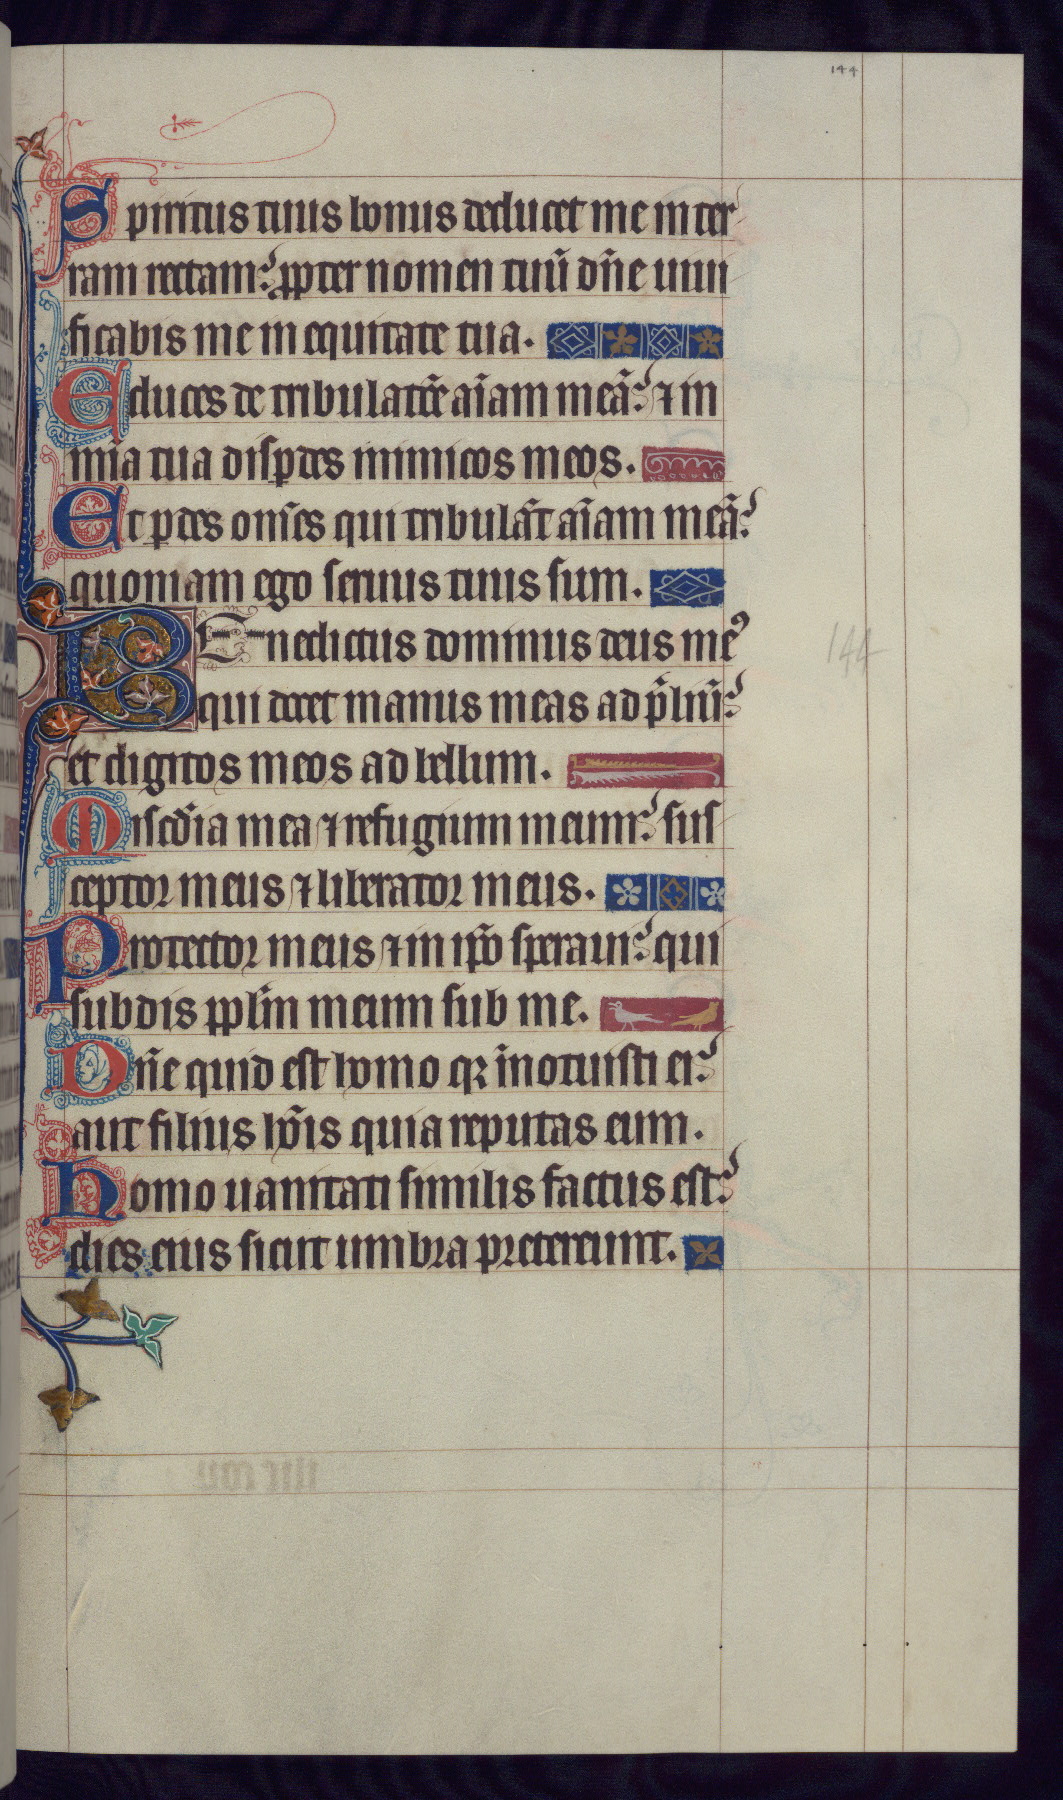 144
Spiritus tuus bonus deducet me in ter
ram rectam: ꝓpter nomen tuū dñe uiui
ficabis me in equitate tua.
Educes de tribulatōe aīam meā: ⁊ in
mīa tua disꝑdes inimicos meos.
Et ꝑdes om̄es qui tribulāt aīam meā:
quoniam ego seruus tuus sum.
Benedictus dominus deus meꝰ
qui docet manus meas ad p̄liū:
et digitos meos ad bellum.
Miscd̄ia mea ⁊ refugium meum: sus
ceptor meus ⁊ liberator meus.
Protector meus ⁊ in ip̄o speraui: qui
subdis pplm̄ meum sub me.
Dñe quid est homo qꝛ īnotuisti ei:
aut filius hōis quia reputas eum.
Homo uanitati similis factus est:
dies eius sicut umbra pretereunt.
144